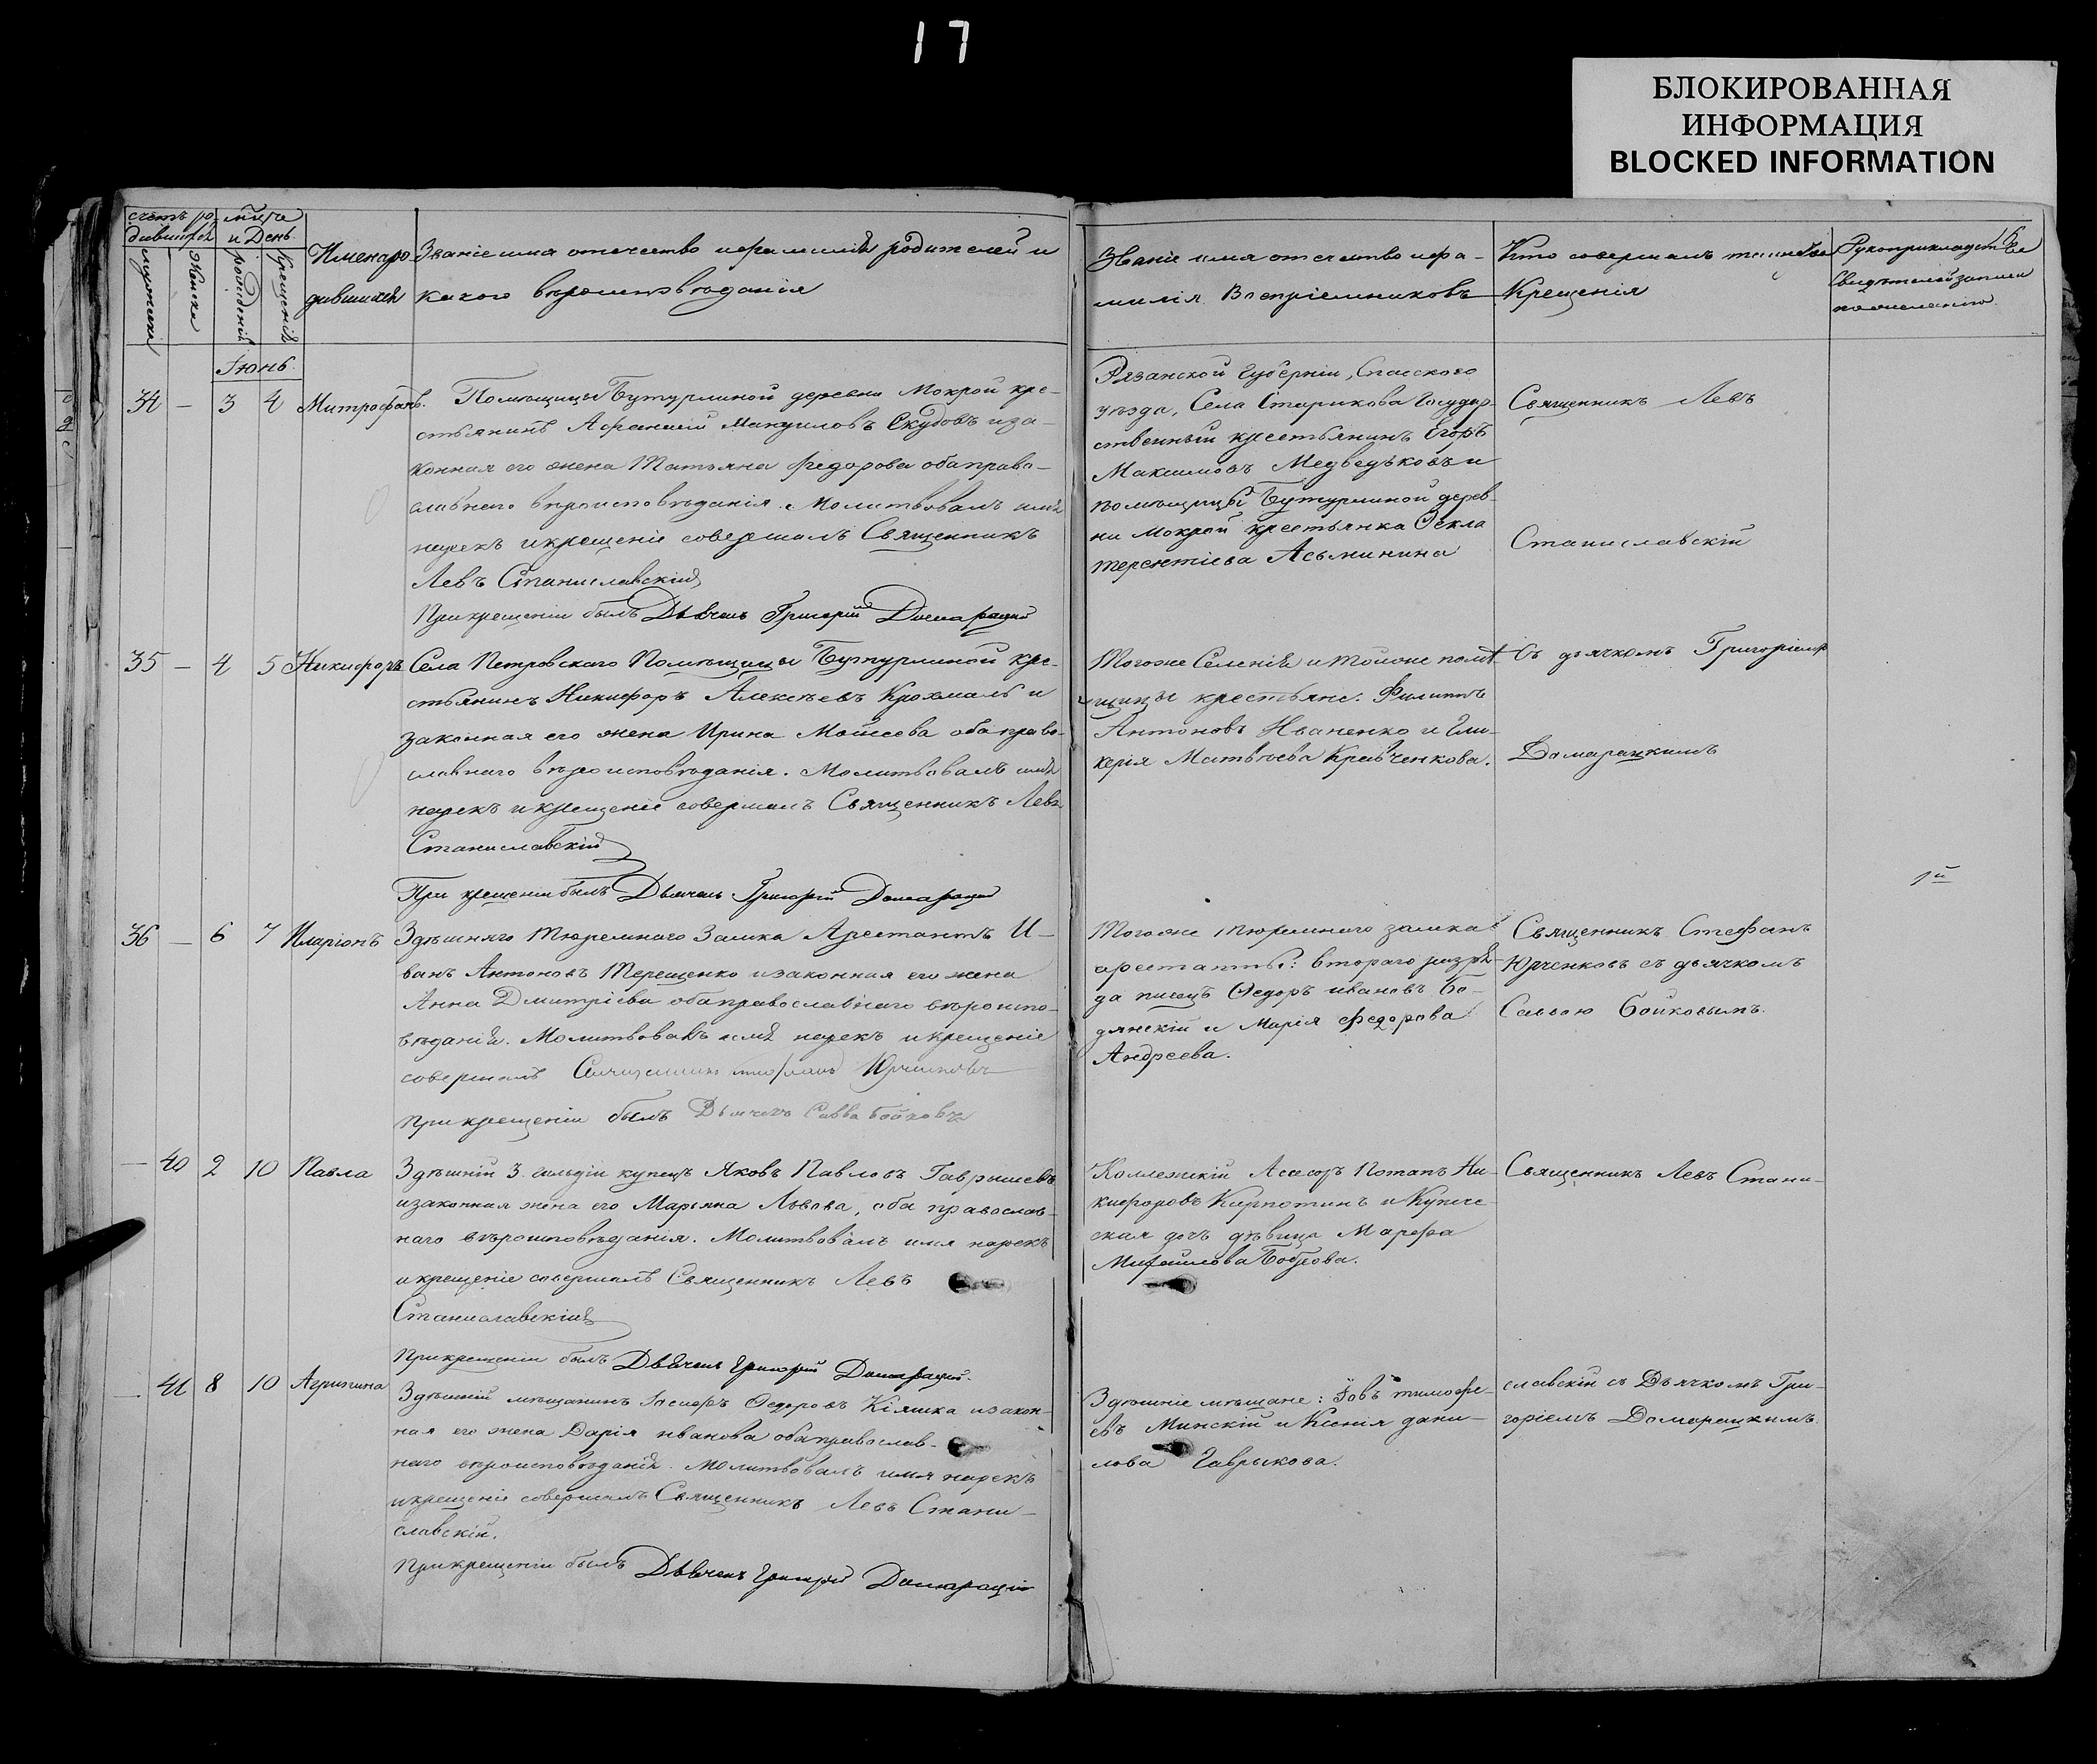 17
БЛОКИРОВАННАЯ
ИНФОРМАЦИЯ
BLOCKED INFORMATION
счетъ ро-
дившихся
мужеска
женска
и День
рожденія
крещенія
Имена ро
дившихся
Званіе имя отечество и фамилія родителей и
какого вероисповѣданія
Званіе имя отечество и фа-
милія Воспріемниковъ
Кто совершалъ таинство
Крещенія
Рукоприкладство
свидетелей записи
по желанію
Іюнь
34 — 3 4 Митрофанъ.
Помѣщицы Бутурлиной деревни Мокрой кре-
стьянинъ Афанасій Мануиловъ Скудовъ и за-
конная его жена Татьяна Федорова оба право-
славнаго вѣроисповѣданія. Молитвовалъ имя
нарекъ и крещеніе совершалъ Священникъ
Левъ Станиславскій
При крещеніи былъ Дьячекъ Григорій Домарацкій
Рязанской Губерніи, Спасского
уѣзда, Села Старикова Государ-
ственный крестьянинъ Егоръ
Максимовъ Медведьковъ и
помѣщицы Бутурлиной дерев-
ни Мокрой крестьянка Фекла
Терентіева Асьминина
Священникъ Левъ
Станиславскій
35 — 4 5 Никифоръ
Села Петровскаго Помѣщицы Бутурлиной кре-
стьянинъ Никифоръ Алексѣевъ Крохмаль и
законная его жена Ирина Моисеева оба право-
славнаго вѣроисповѣданія. Молитвовалъ имя
нарекъ и крещеніе совершалъ Священникъ Левъ
Станиславскій
При крещеніи былъ Дьячекъ Григорій Домарацкій
Тогоже Селенія и тойже помѣ-
щицы крестьяне: Филиппъ
Антоновъ Иваненко и Гли-
керія Матвѣева Кравченкова.
Съ дьячкомъ Григоріемъ
Домарацкимъ
36 — 6 7 Иларіонъ
Здѣшняго Тюремнаго Замка Арестантъ И-
ванъ Антоновъ Терещенко и законная его жена
Анна Дмитріева оба православнаго вѣроиспо-
вѣданія. Молитвовалъ имя нарекъ и крещеніе
совершалъ Священникъ Стефанъ Юрченковъ
При крещеніи былъ Дьячекъ Савва Бойковъ
Тогоже тюремнаго замка
арестанты: втораго разря-
да писецъ Федоръ Ивановъ Бо-
дянскій и Марія Федорова
Андреева.
Священникъ Стефанъ
Юрченковъ съ дьячкомъ
Саввою Бойковымъ.
— 40 2 10 Павла
Здѣшній 3. гильдіи купецъ Яковъ Павловъ Гаврышевъ
и законная жена его Марьяна Львова, оба православ-
наго вѣроисповѣданія. Молитвовалъ имя нарекъ
и крещеніе совершалъ Священникъ Левъ
Станиславскій
При крещеніи былъ Дьячекъ Григорій Домарацкій.
Коллежскій Асесоръ Потапъ Ни-
кифоровъ Карпотинъ и Купече-
ская дочь дѣвица Марфа
Михайлова Боброва.
Священникъ Левъ Стани-
— 41 8 10 Агрипина
Здѣшній мѣщанинъ Іосифъ Федоровъ Кіяшка и закон-
ная его жена Дарія Иванова оба православ-
наго вѣроисповѣданія. Молитвовалъ имя нарекъ
и крещеніе совершалъ Священникъ Левъ Стани-
славскій.
При крещеніи былъ Дьячекъ Григорій Домарацкій
Здѣшніе мѣщане: Іовъ Тимофе-
евъ Минскій и Ксенія Дани-
лова Гаврыкова.
славскій съ Дьячкомъ Гри-
горіемъ Домарацкимъ.